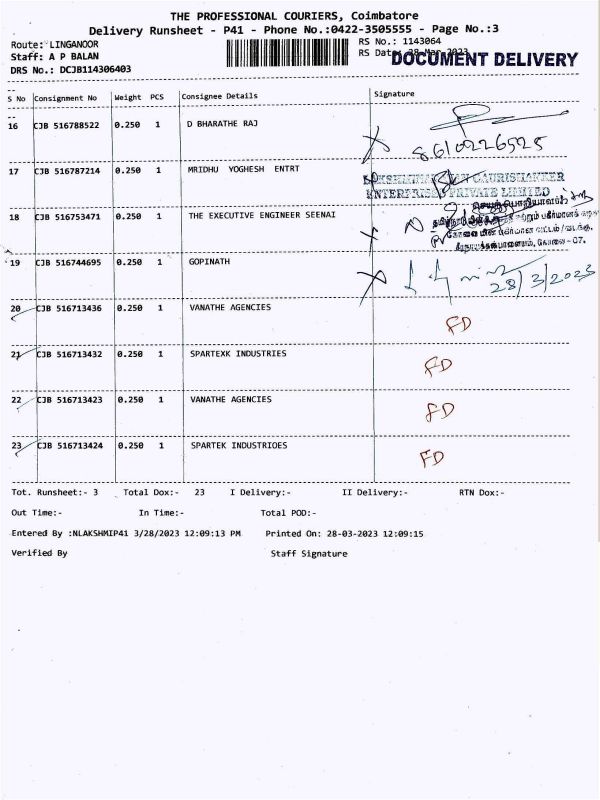 THE PROFESSIONAL COURIERS, Coimbatore
Delivery Runsheet - P41 - Phone No.:0422-3505555 - Page No.:3
Route: LINGANOOR
RS No.: 1143064
Staff: A P BALAN
RS Date: 28-Mar-2023
DOCUMENT DELIVERY
DRS No.: DCJB114306403
S No Consignment No Weight PCS Consignee Details Signature
16 CJB 516788522 0.250 1 D BHARATHE RAJ
8610226525
17 CJB 516787214 0.250 1 MRIDHU YOGHESH ENTRT
GAURISHANKER
ENTERPRISES PRIVATE LIMITED
18 CJB 516753471 0.250 1 THE EXECUTIVE ENGINEER SEENAI
கோவை - 07.
19 CJB 516744695 0.250 1 GOPINATH
28/3/2023
20 CJB 516713436 0.250 1 VANATHE AGENCIES
FD
21 CJB 516713432 0.250 1 SPARTEXK INDUSTRIES
FD
22 CJB 516713423 0.250 1 VANATHE AGENCIES
FD
23 CJB 516713424 0.250 1 SPARTEK INDUSTRIOES
FD
Tot. Runsheet:- 3 Total Dox:- 23 I Delivery:- II Delivery:- RTN Dox:-
Out Time:- In Time:- Total POD:-
Entered By :NLAKSHMIP41 3/28/2023 12:09:13 PM Printed On: 28-03-2023 12:09:15
Verified By Staff Signature